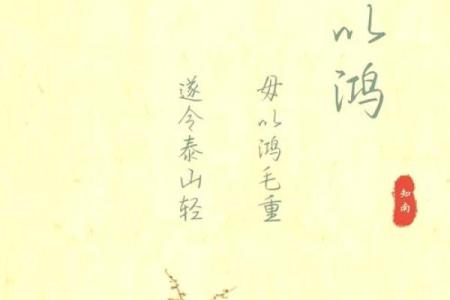 以鸿
毋以鸿毛重
遂令泰山轻
知南